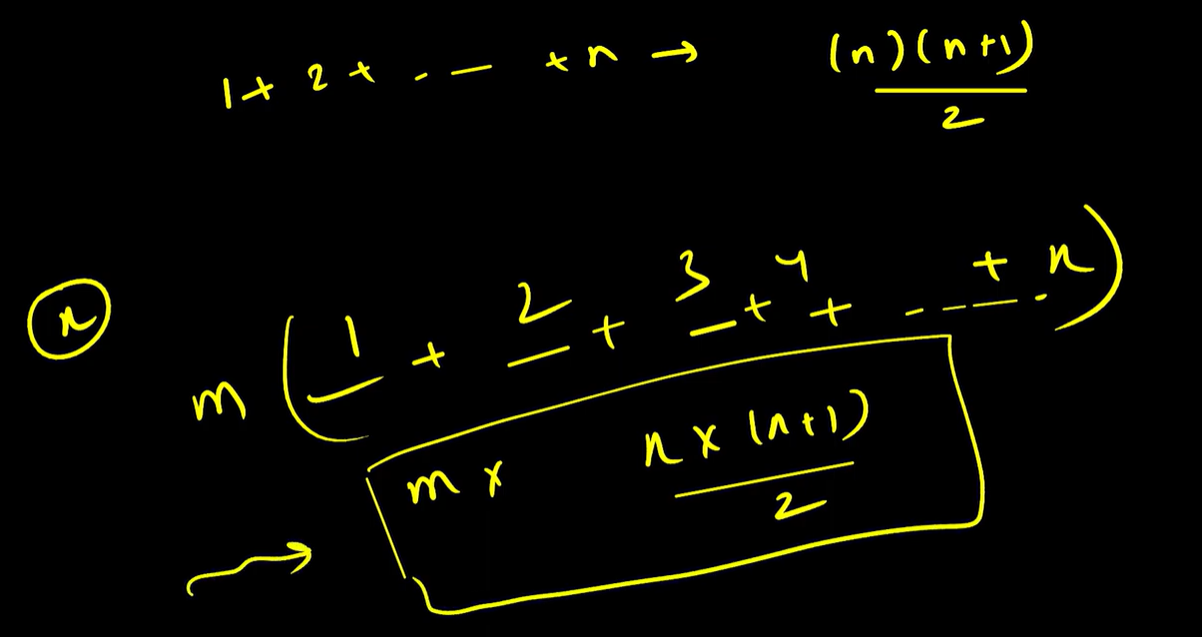 1 + 2 + - — + n → (n)(n+1)/2
n
m (1 + 2 + 3 + 4 + - - - - . + n)
m × n × (n+1)/2